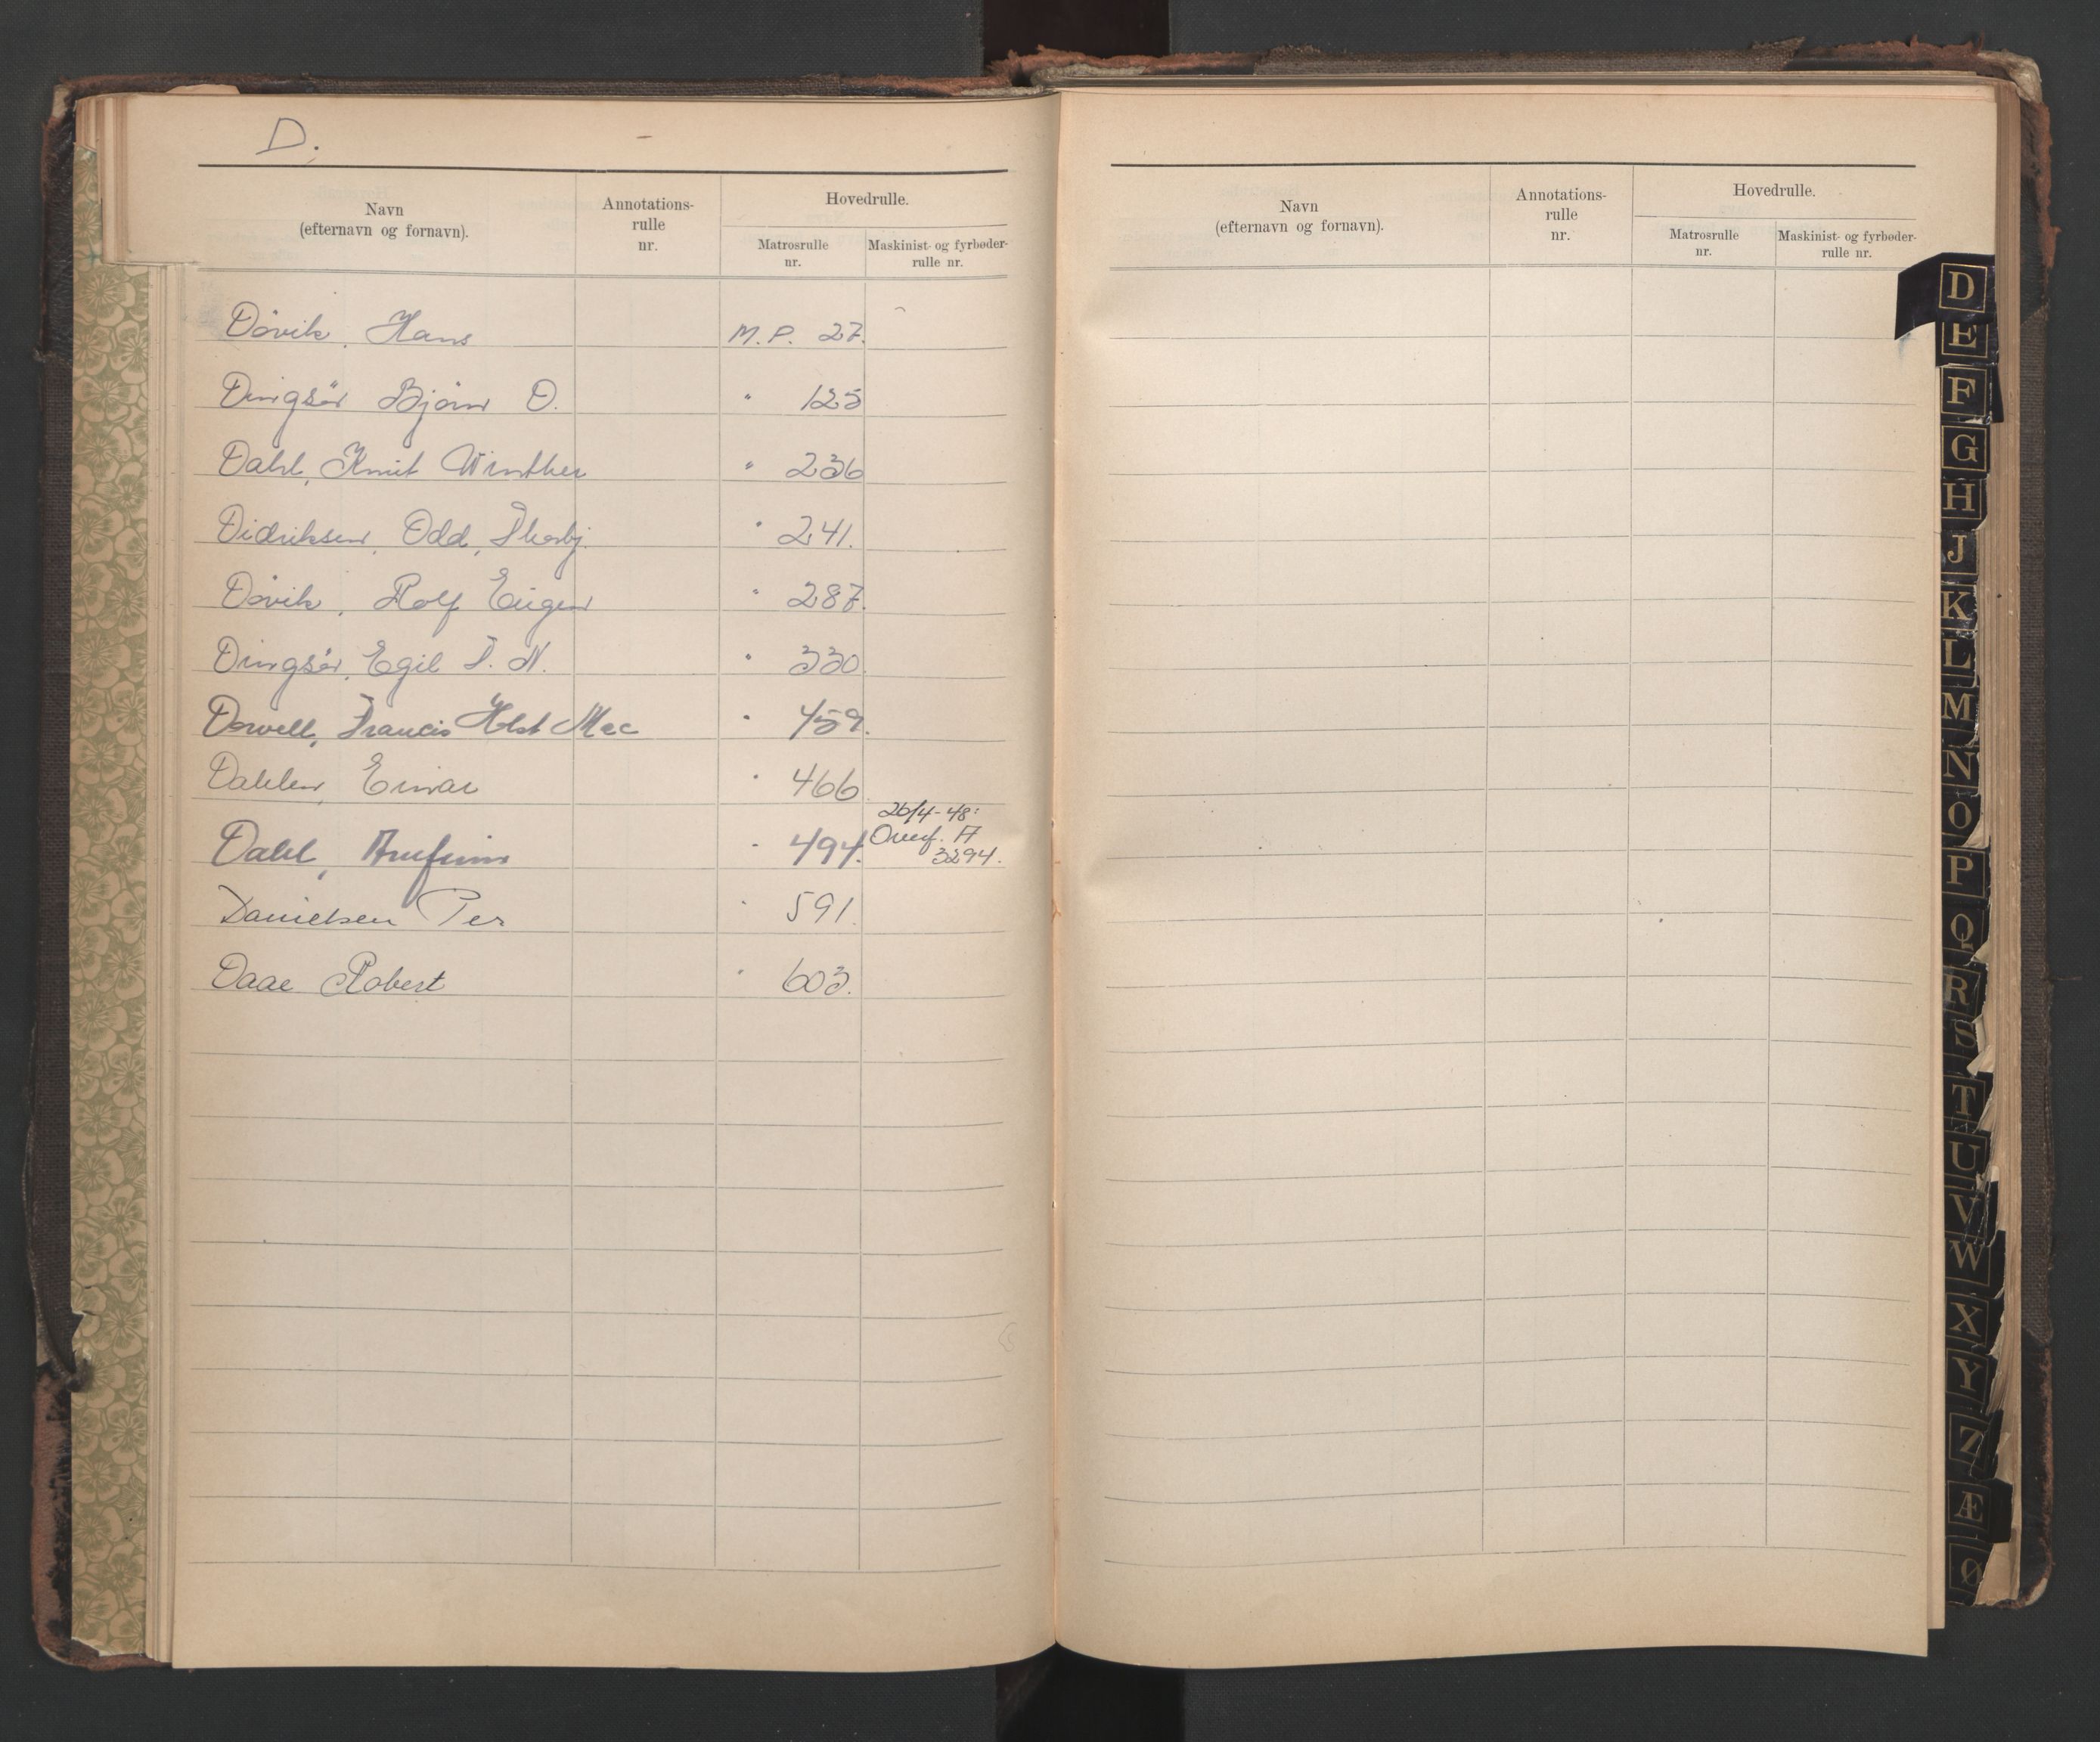 D.
Navn
(efternavn og fornavn).
Annotations-
rulle
nr.
Hovedrulle.
Matrosrulle
nr.
Maskinist- og fyrbøder-
rulle nr.
Dövik, Hans M.P. 27.
Dingsör Björn O. " 125
Dahl, Knut Winther " 236
Didriksen, Odd, Thorbj. " 241.
Dövik, Rolf Eugen " 287.
Dingsör, Egil T. N. " 330.
Dowell, Francis Holst Mac " 459.
Dahlen, Einar " 466.
26/4-48:
Dahl, Arnfinn " 494. Overf. A
3294.
Danielsen Per " 591.
Daae Robert " 603.
Navn
(efternavn og fornavn).
Annotations-
rulle
nr.
Hovedrulle.
Matrosrulle
nr.
Maskinist- og fyrbøder-
rulle nr.
D
E
F
G
H
J
K
L
M
N
O
P
Q
R
S
T
U
V
W
X
Y
Z
Æ
Ø